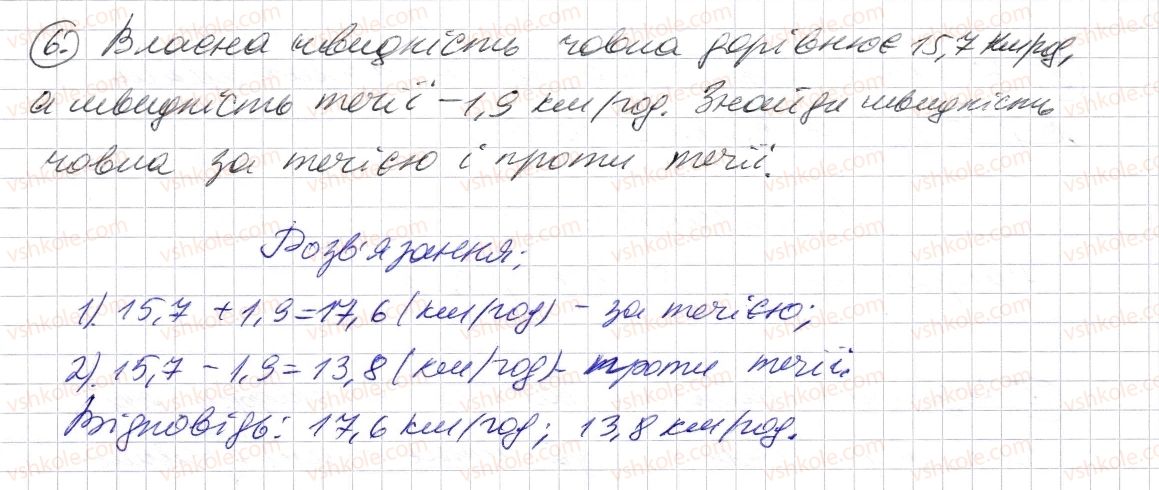 6. Власна швидкість човна дорівнює 15,7 км/год,
а швидкість течії - 1,9 км/год. Знайди швидкість
човна за течією і проти течії.
Розв'язання:
1). 15,7 + 1,9 = 17,6 (км/год) - за течією;
2). 15,7 - 1,9 = 13,8 (км/год) - проти течії.
Відповідь: 17,6 км/год; 13,8 км/год.